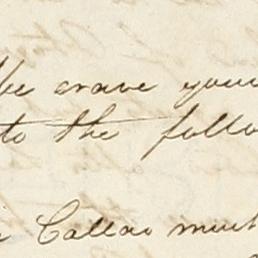 We crave your
to the follo
Callao must